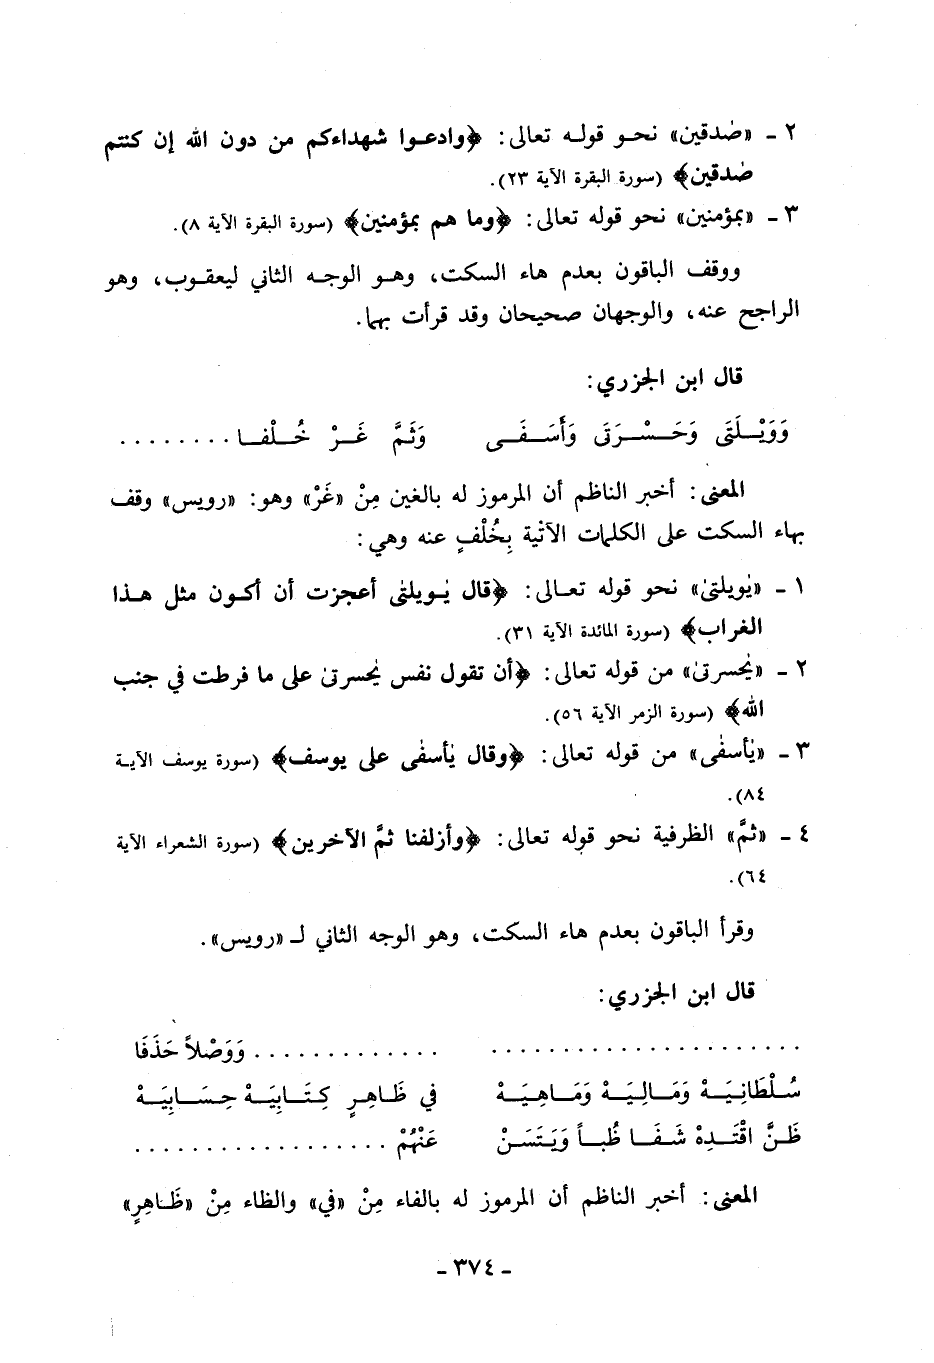 ٢ - «صٰدقين» نحـو قولـه تعالى: ﴿وادعـوا شهداءكم من دون الله إن كنتم
صٰدقين﴾ (سورة البقرة الآية ٢٣).
٣ - «بمؤمنين» نحو قوله تعالى: ﴿وما هم بمؤمنين﴾ (سورة البقرة الآية ٨).
ووقف الباقون بعدم هاء السكت، وهـو الوجـه الثاني ليعقـوب، وهو
الراجح عنه، والوجهان صحيحان وقد قرأت بهما.
قال ابن الجزري:
وَوَيْـلَتَى وَحَـسْـرَتَى وَأَسَـفَـى وَثَمَّ غَـرْ خُـلْفـا ........
المعنى: أخبر الناظم أن المرموز له بالغين مِنْ «غَرْ» وهو: «رويس» وقف
بهاء السكت على الكلمات الآتية بِخُلْفٍ عنه وهي:
١ - «يٰويلتىٰ» نحو قوله تعـالى: ﴿قال يٰـويلتىٰ أعجزت أن أكـون مثل هـذا
الغراب﴾ (سورة المائدة الآية ٣١).
٢ - «يٰحسرتىٰ» من قوله تعالى: ﴿أن تقول نفس يٰحسرتىٰ على ما فرطت في جنب
الله﴾ (سورة الزمر الآية ٥٦).
٣ - «يٰأسفٰى» من قوله تعالى: ﴿وقال يٰأسفٰى على يوسف﴾ (سورة يوسف الآيـة
٨٤).
٤ - «ثمَّ» الظرفية نحو قوله تعالى: ﴿وأزلفنا ثمَّ الآخرين﴾ (سورة الشعراء الآية
٦٤).
وقرأ الباقون بعدم هاء السكت، وهو الوجه الثاني لـ «رويس».
قال ابن الجزري:
..................... ............. وَوَصْلاً حَذَفَا
سُـلْطَانِيَـهْ وَمَـالِيَـهْ وَمَـاهِيَـهْ في ظَـاهِرٍ كِتَـابِيَـهْ حِـسَـابِيَـهْ
ظَـنَّ اقْتَـدِهْ شَـفَـا ظُبـاً وَيَتَسَـنْ عَنْهُمْ .................
المعنى: أخبر الناظم أن المرموز له بالفاء مِنْ «في» والظاء مِنْ «ظَـاهِرٍ»
- ٣٧٤ -